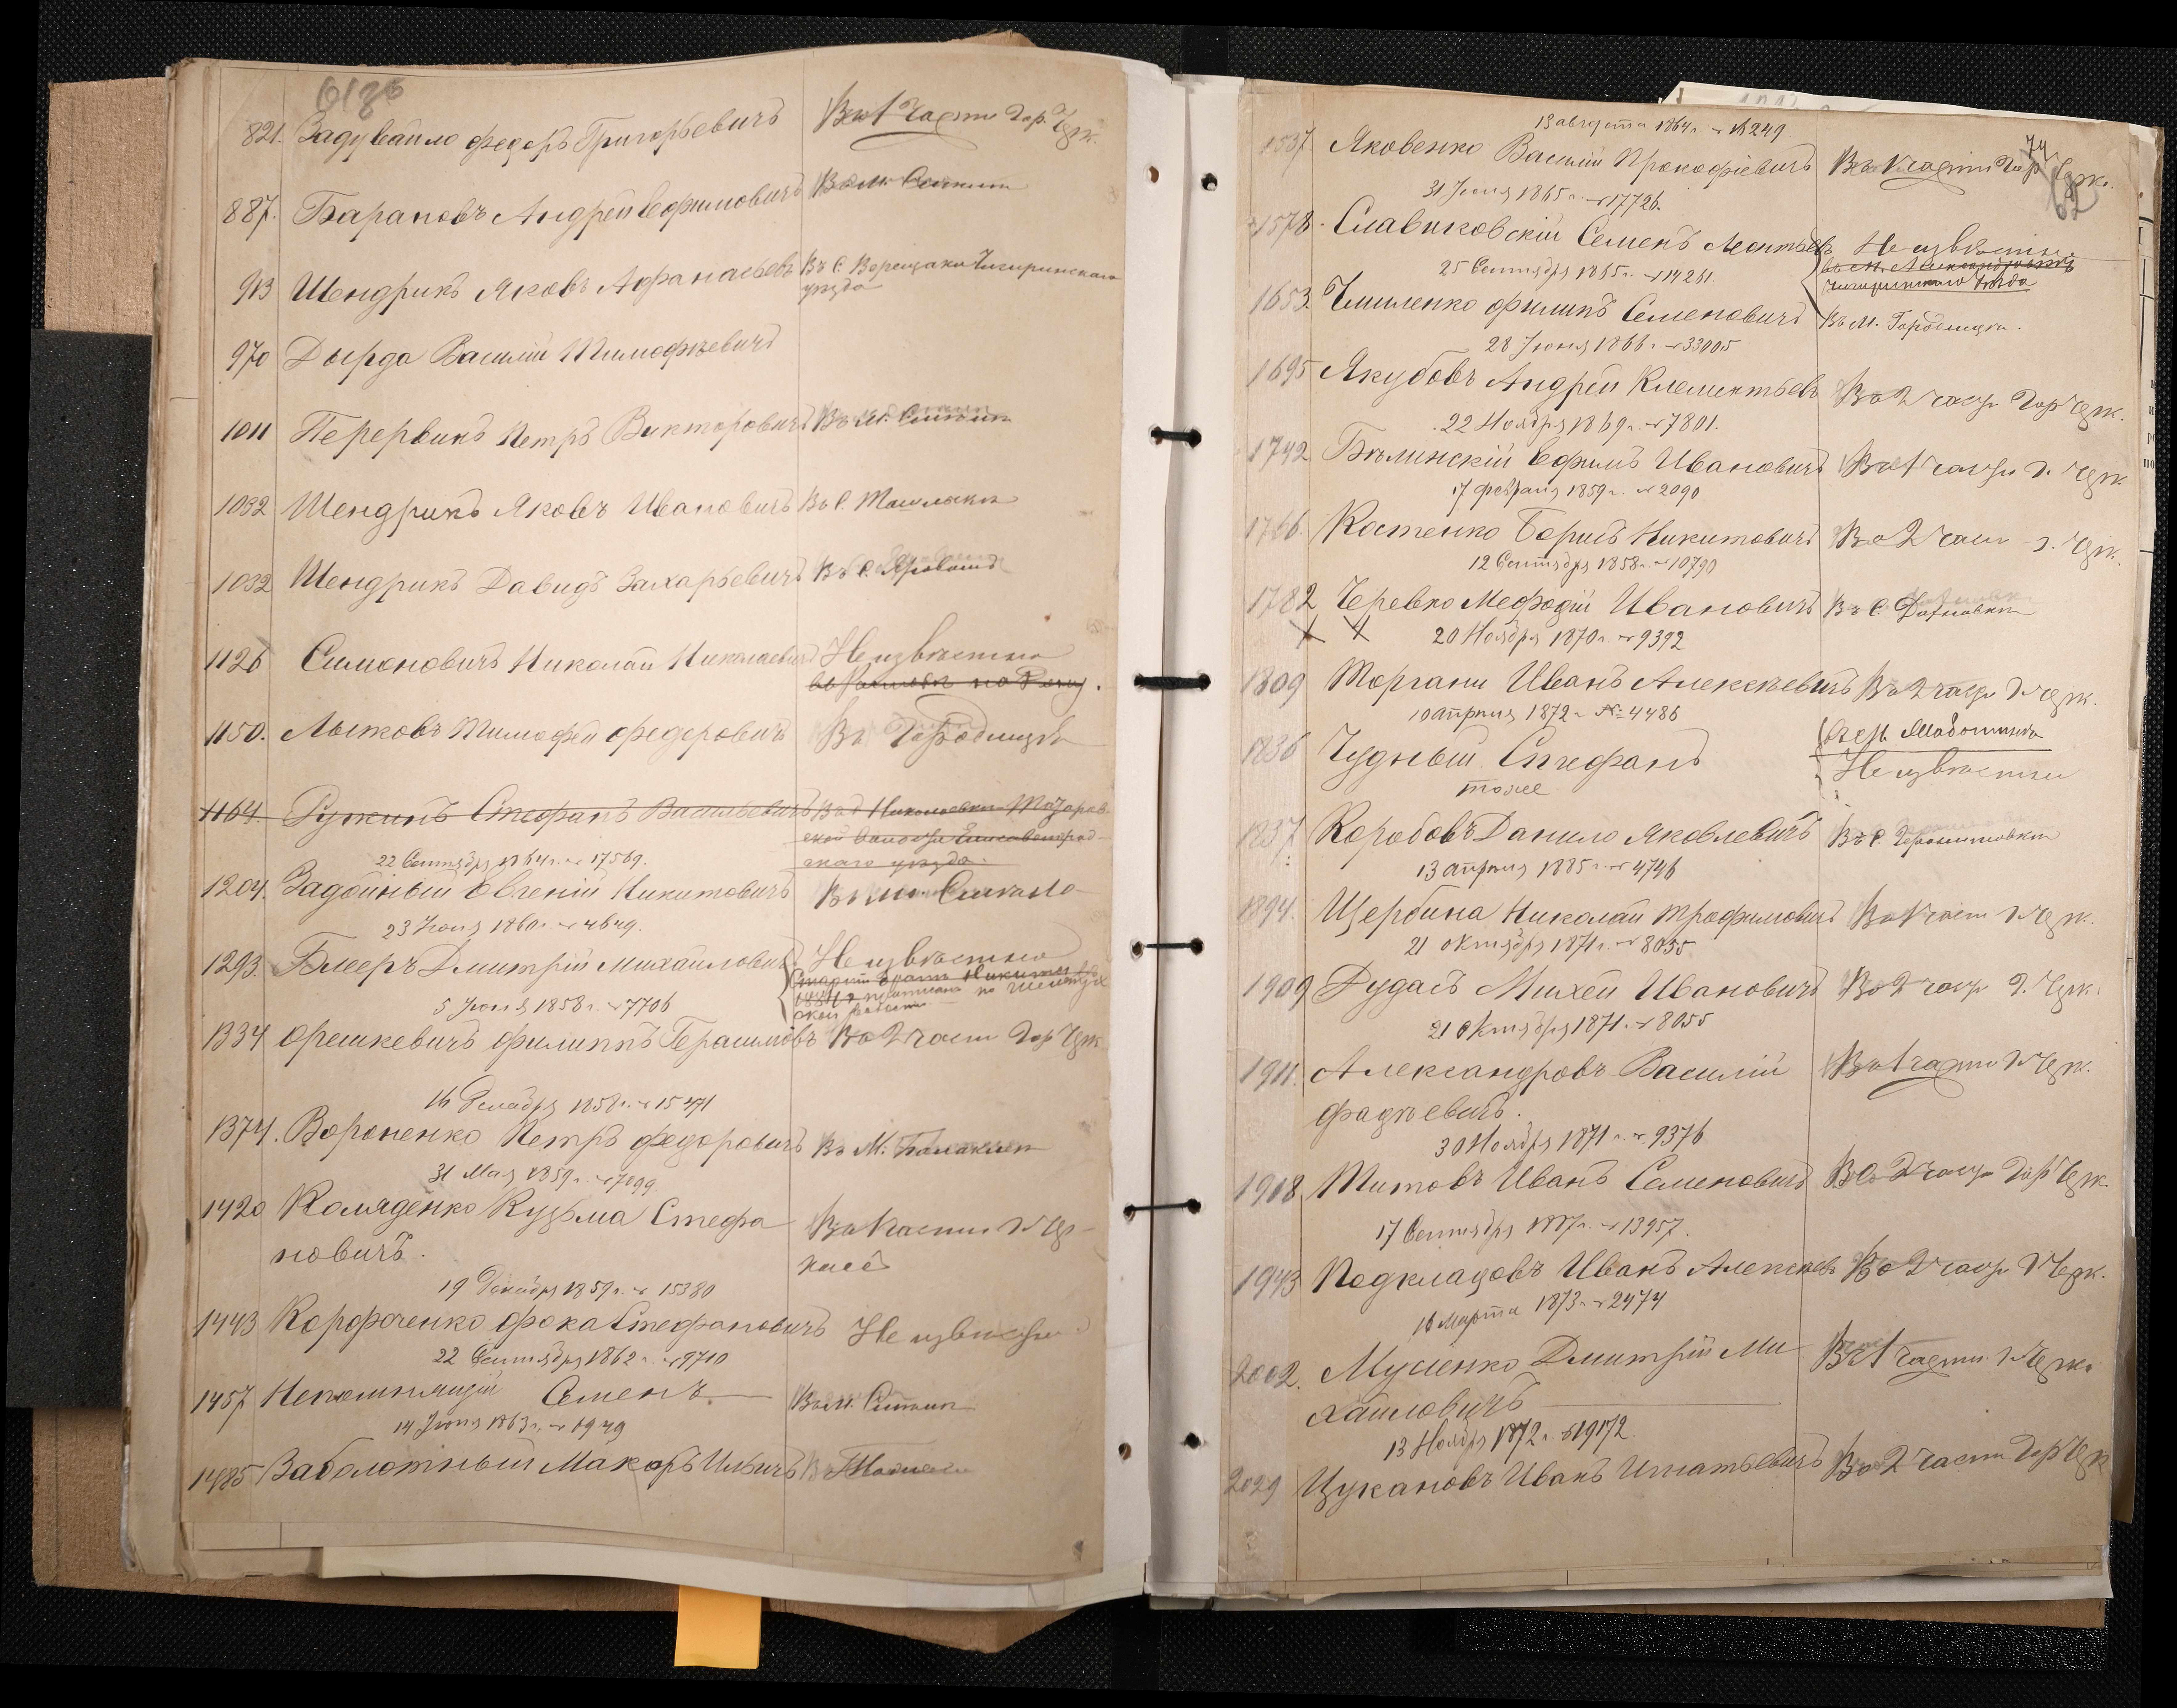 6186
821. Задувайло Федоръ Григорьевичъ Въ 1 части Гор. Черк.
887. Барановъ Андрей Ефимовичъ Въ м.
913 Шендрикъ Яковъ Афанасьевъ Въ С. Верещаки Чигиринскаго
уезда
970 Дырда Василій Тимофѣевичъ
1011 Перервинъ Петръ Викторовичъ Въ м.
1032 Шендрикъ Яковъ Ивановичъ Въ С. Ташлыки
1032 Шендрикъ Давидъ Захарьевичъ Въ С.
1126 Симоновичъ Николай Николаевичъ Неизвѣстно
1150. Лытковъ Тимофей Федоровичъ Въ Городищѣ
1164. Ружинъ Стефанъ Васильевичъ
22 Сентября 1864 г. № 17569.
1204. Задойный Евгеній Никитовичъ Въ м.
23 Іюня 1860 г. № 4649.
1293. Блееръ Дмитрій Михайловичъ Неизвѣстно
5 Іюня 1858 г. № 7706
1334 Орешкевичъ Филиппъ Герасимовъ Во 2 части Гор Черк
16 Декабря 1858 г. № 15471
1374. Вороненко Петръ Федоровичъ Въ М. Балаклеи
31 Мая 1859 г. № 7099
1420 Коляденко Кузьма Стефа Въ 1 части Г. Чер-
новичъ. касс
19 Декабря 1859 г. № 15380
1443 Корфоченко Фока Стефановичъ Неизвѣстно
22 Сентября 1862 г. № 9710
1457 Непомнящій Семенъ Въ м.
14 Іюня 1863 г. № 6949
1485 Заболотный Макаръ Ильичъ
74
62
13 августа 1864 г. № 249
1537 Яковенко Василій Прокофіевичъ Въ 1 части Гор Черк.
31 Іюля 1865 г. № 17726.
1578. Славиковскій Семенъ Леонтьевъ Неизвѣстно
въ м. Александровкѣ
25 Сентября 1865 г. № 14261. Чигиринскаго уезда
1653. Чмиленко Филипъ Семеновичъ Въ М. Городищи.
28 Іюня 1866 г. № 33005
1695 Якубовъ Андрей Клементьевъ Во 2 части Гор Черк.
22 Ноября 1869 г. № 7801.
1742 Бѣлинскій Ефимъ Ивановичъ Въ 1 части г. Черк
17 Февраля 1859 г. № 2090
1766. Костенко Борисъ Никитовичъ Во 2 части г. Черк.
12 Сентября 1858 г. № 10790
1782 Черевко Мефодій Ивановичъ Въ С.
20 Ноября 1870 г. № 9392
1809 Моргани Иванъ Алексѣевичъ Во 2 части Г. Черк.
10 апрѣля 1872 г. № 4486
1836 Чудный Стефанъ
тоже Неизвѣстно
1837 Коробовъ Данило Яковлевичъ Въ С. Геронимовки
13 апрѣля 1885 г. № 4746
1894. Щербина Николай Трофимовичъ Въ 1 части Г. Черк.
21 октября 1871 г. № 8055
1909 Дудасъ Михей Ивановичъ Во 2 части Г. Черк.
21 октября 1871 г. № 8055
1911. Александровъ Василій Въ 1 части Г. Черк.
Фадѣевичъ.
30 Ноября 1871 г. № 9376
1918 Титовъ Иванъ Семеновичъ Во 2 части Гор Черк.
17 Сентября 1887 г. № 13957.
1943 Подкладовъ Иванъ Алексѣевъ Во 2 части Г. Черк.
16 Марта 1873 г. № 2474
2002. Мусіенко Дмитрій Ми Въ 1 части Г. Черк.
хайловичъ
13 Ноября 1872 г. № 19172.
2029 Цукановъ Иванъ Игнатьевичъ Во 2 части Гор Черк